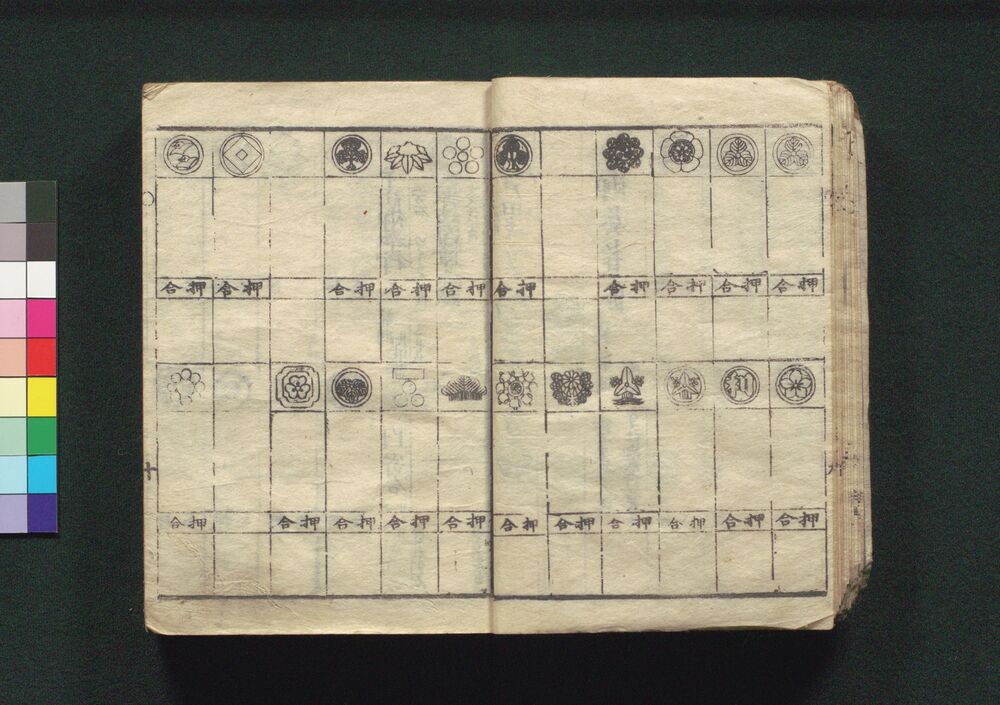 押合 押合 押合 押合 押合 押合 押合 押合 押合 押合
押合 押合 押合 押合 押合 押合 押合 押合 押合 押合 押合